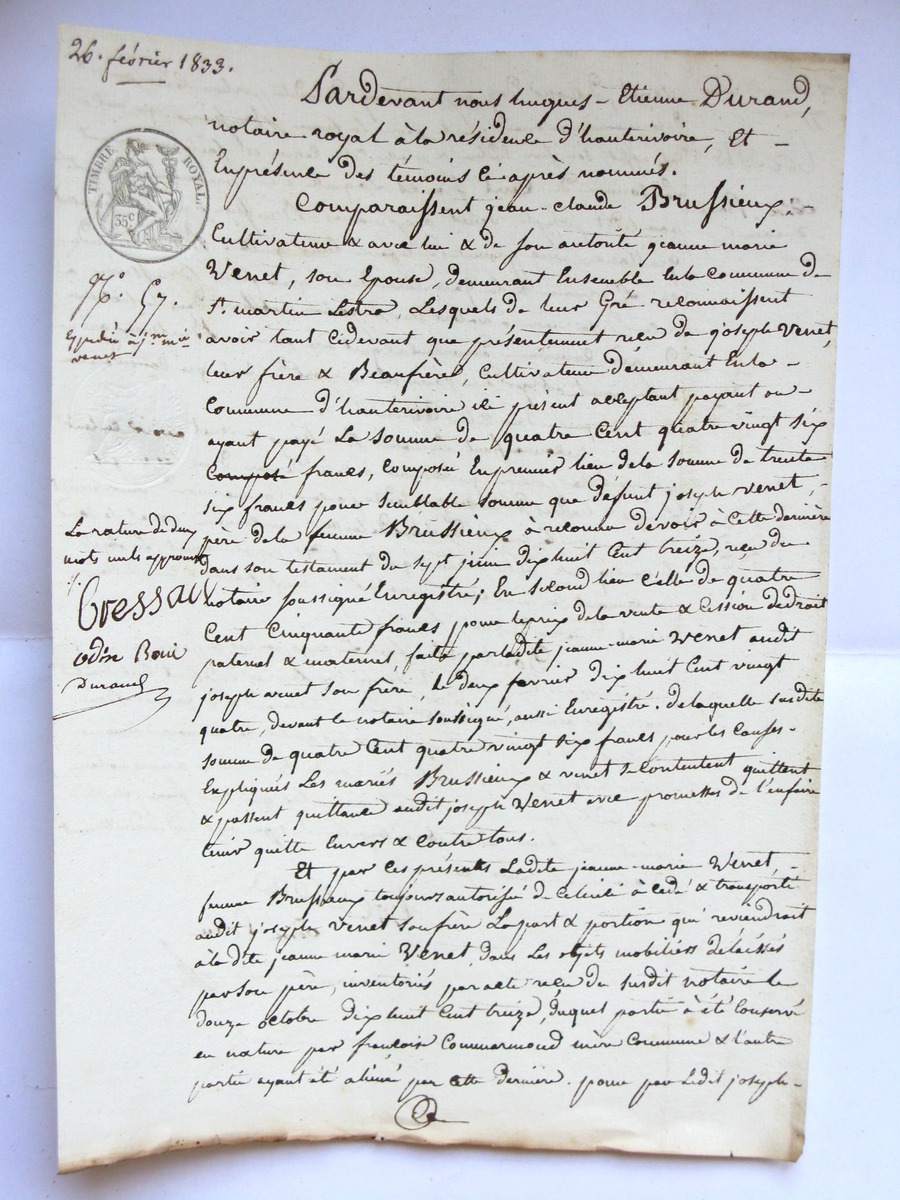 26. février 1833.
Pardevant nous hugues-Etienne Durand,
notaire royal à la résidence d'hauterivoire, Et -
En présence des témoins ci après nommés.
TIMBRE ROYAL.
35c
Comparaissent jean-claude Brussieux,
Cultivateur & avec lui & de son autorité jeanne marie
Venet, son Epouse, demeurant Ensemble En la Commune de
St. martin Lestra, Lesquels de leur Gré reconnaissent
No. 57.
avoir tant cidevant que présentement reçu de joseph Venet,
Expédié à
venet
leur frère & Beaufrère, Cultivateur demeurant En la -
Commune d'hauterivoire ici présent acceptant payant ou -
ayant payé La somme de quatre Cent quatre vingt six
Composé francs, Composée En premier lieu de la somme de trente
six francs pour semblable somme que défunt joseph Venet,
père de la femme Brussieux à reconnu devoir à Cette dernière
La rature de deux
mots nuls approuvé
dans son testament du sept juin dix huit Cent treize, reçu du
notaire soussigné Enregistré; En second lieu Celle de quatre
Cent Cinquante francs pour le prix de la vente & Cession de droit
paternel & maternel, faite par ladite jeanne-marie Venet audit
Durand
joseph venet son frère, le deux février dix huit Cent vingt
quatre, devant le notaire soussigné, aussi Enregistré. De laquelle susdite
somme de quatre Cent quatre vingt six francs pour les Causes -
Expliqués Les mariés Brussieux & venet se Contentent quittent
& passent quittance audit joseph Venet avec promesses de l'en faire
tenir quitte Envers & Contre tous.
Et par Ces présentes Ladite jeanne-marie Venet, -
femme Brussieux toujours autorisée de Celui-ci à Cédé & transporté
audit joseph Venet son frère La part & portion qui reviendrait
à la dite jeanne marie Venet, dans Les objets mobiliers délaissés
par son père, inventoriés par acte reçu du susdit notaire le
douze octobre dix huit Cent treize, duquel partie à été Conservé
en nature par françoise Commarmond mère Commune & l'autre
partie ayant été aliéné par Cette dernière. pour par Ledit joseph -